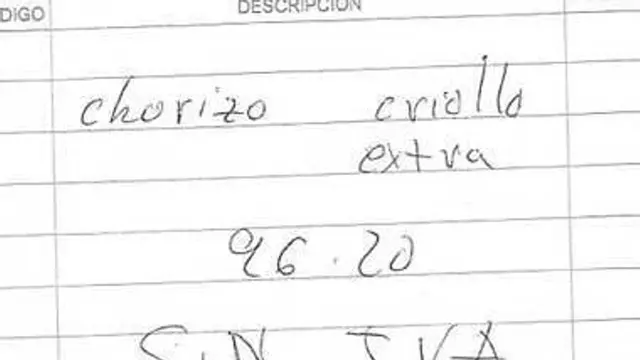 DIGO DESCRIPCION
chorizo criollo
extra
96.20
SIN IVA